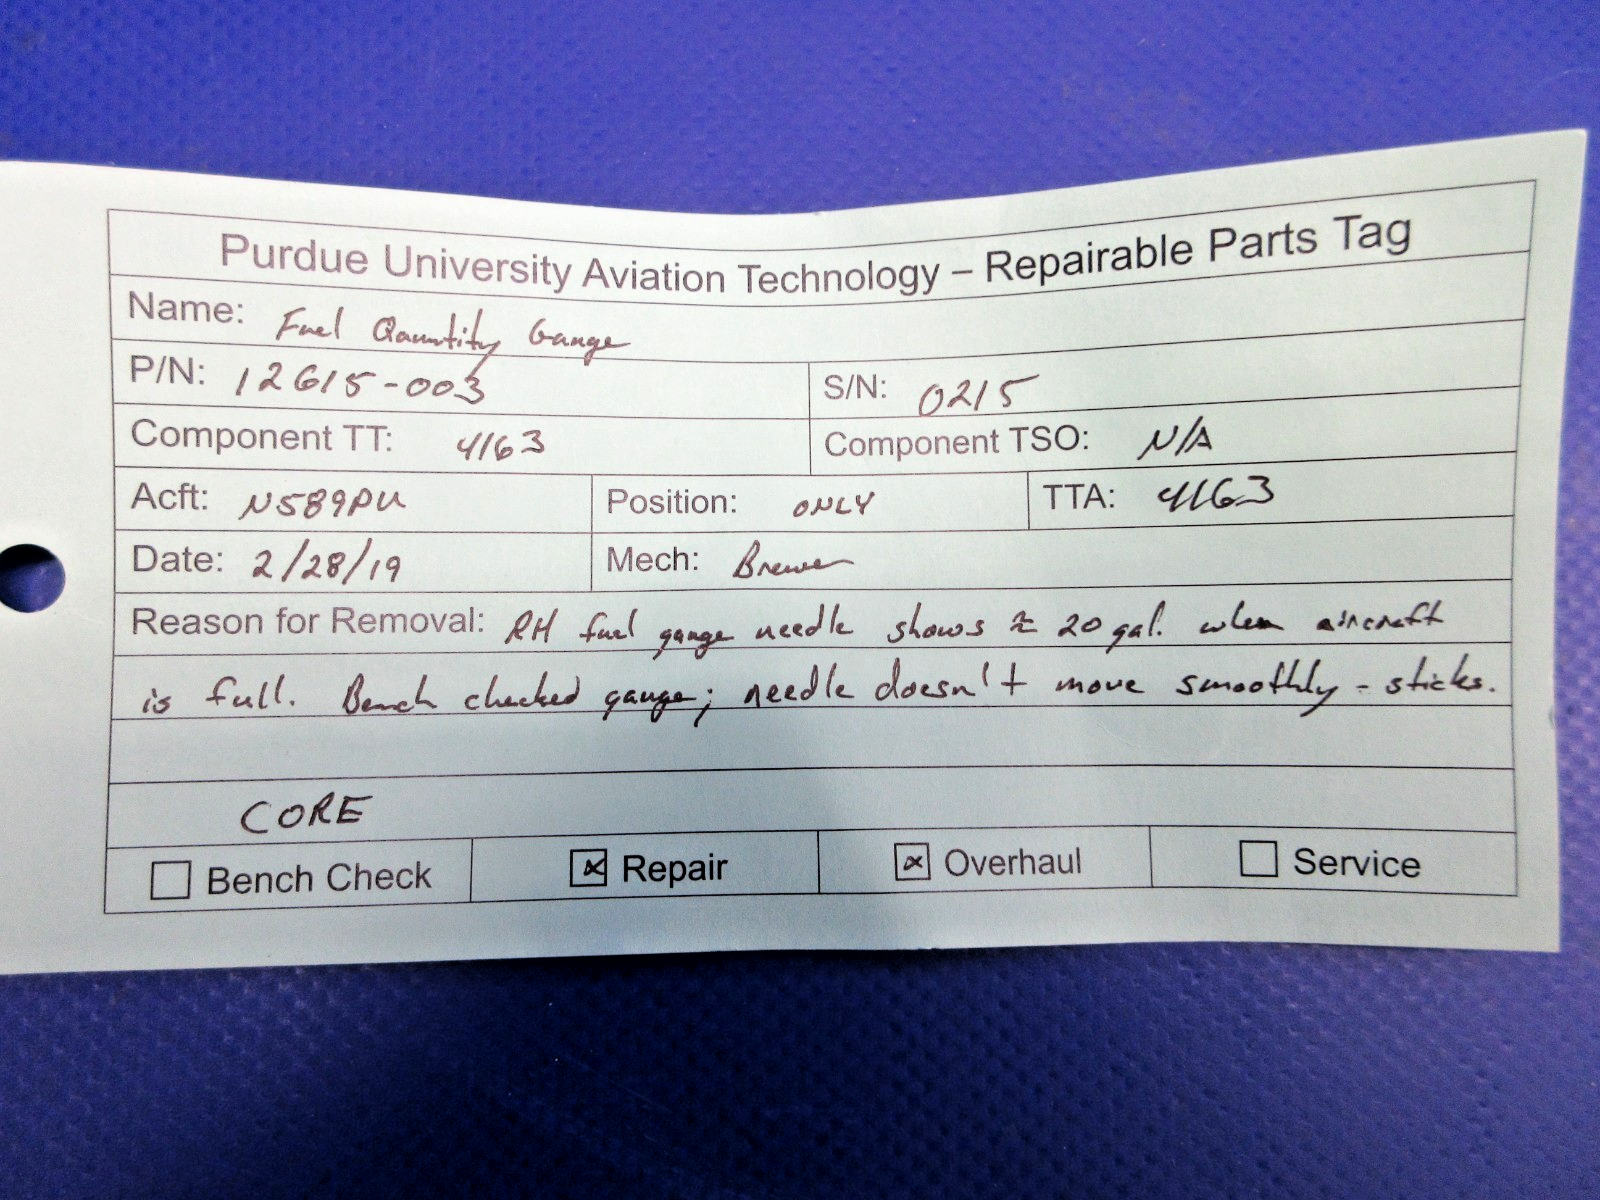 Purdue University Aviation Technology – Repairable Parts Tag
Name: Fuel Quantity Gauge
P/N: 12615-003 S/N: 0215
Component TT: 4163 Component TSO: N/A
Acft: N589PU Position: ONLY TTA: 4163
Date: 2/28/19 Mech: Brewer
Reason for Removal: RH fuel gauge needle shows ≈ 20 gal. when aircraft
is full. Bench checked gauge; needle doesn't move smoothly - sticks.
CORE
Bench Check Repair Overhaul Service